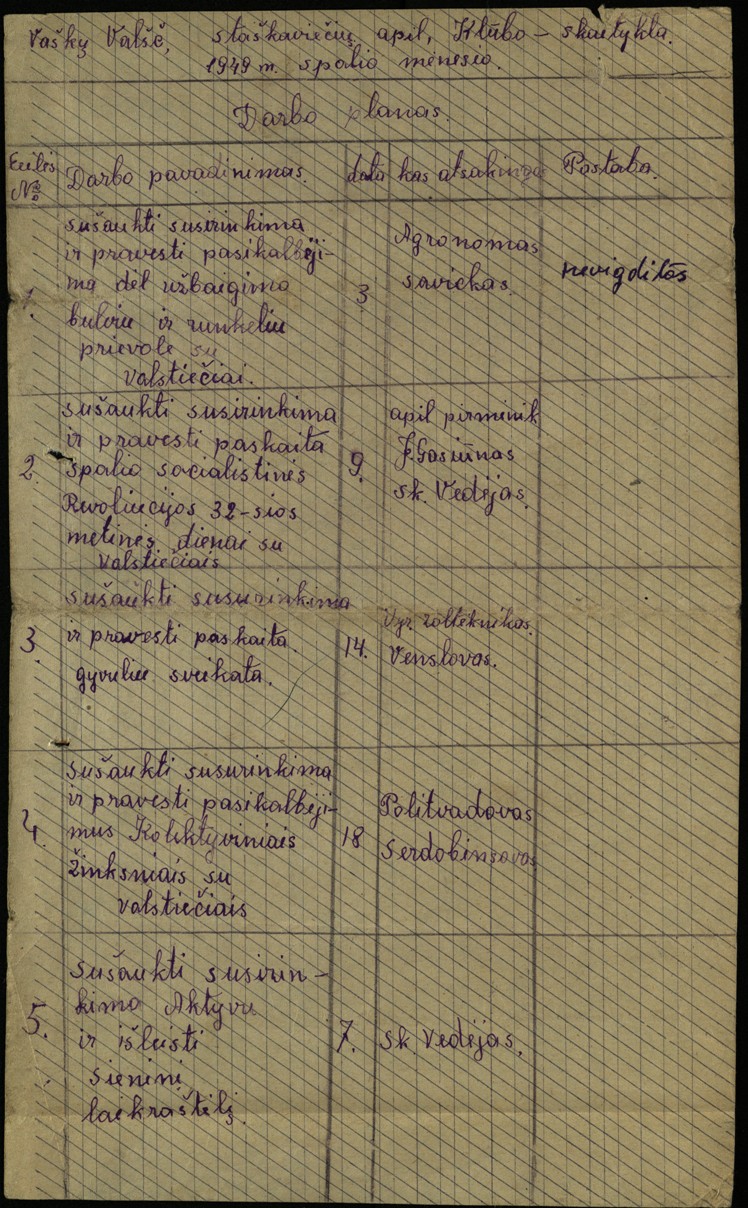 Vaškų Valsč, staškaviečių apil, Klūbo – skaitykla.
1949 m. spalio mėnesio.
Darbo planas.
Eilės № Darbo pavadinimas. data kas atsakinga Pastaba.
sušaukti susirinkima
ir pravesti pasikalbėji-
ma dėl užbaigimo
bulviu ir runkeliu
prievole su
valstiečiai.
1. 3 Agronomas
savickas.
nevigditas
sušaukti susirinkima
ir pravesti paskaita
spalio socialistinės
Revoliucijos 32-sios
metinės dienai su
valstiečiais
2. 9. apil pirminik
J. Gasiūnas
sk. Vedėjas.
sušaukti susurinkima
ir pravesti paskaita.
gyvuliu sveikata.
3. 14. Vyr. zoltėknikas.
Venslovas.
sušaukti susurinkima
ir pravesti pasikalbėji-
mus Kolektyviniais
žinksniais su
valstiečiais
4. 18 Politvadovas
Serdobinsavas
sušaukti susirin-
kima Aktyvu
ir išleisti
sieninį
laikraštėlį.
5. 7. sk. Vedėjas.